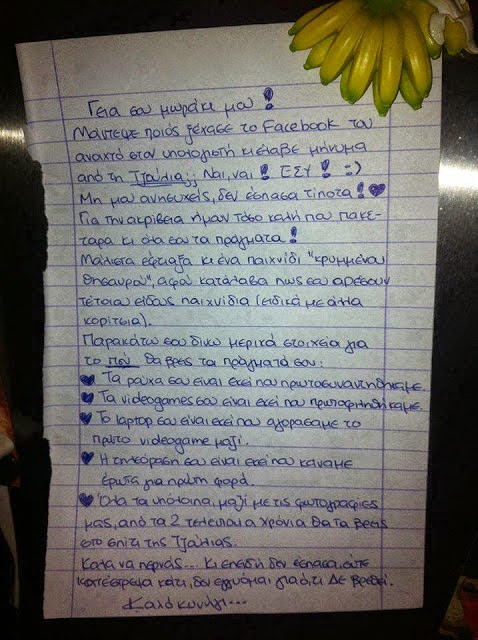 Γεια σου μωράκι μου!
Μάντεψε ποιός ξέχασε το Facebook του
ανοιχτό στον υπολογιστή κι έλαβε μήνυμα
από τη Τζούλια; Ναι, ναι! ΕΣΥ! :)
Μη μου ανησυχείς, δεν έσπασα τίποτα! ♥
Για την ακρίβεια ήμουν τόσο καλή που πακε-
ταρα κι όλα σου τα πράγματα!
Μάλιστα έφτιαξα κι ένα παιχνίδι "κρυμμένου
θησαυρού", αφού κατάλαβα πως σου αρέσουν
τέτοιου είδους παιχνίδια (ειδικά με άλλα
κορίτσια).
Παρακάτω σου δίνω μερικά στοιχεία για
το πού θα βρεις τα πράγματά σου:
♥ Τα ρούχα σου είναι εκεί που πρωτοσυναντηθήκαμε.
♥ Τα videogames σου είναι εκεί που πρωτοφιληθήκαμε.
♥ Το laptop σου είναι εκεί που αγοράσαμε το
πρώτο videogame μαζί.
♥ Η τηλεόραση σου είναι εκεί που κάναμε
έρωτα για πρώτη φορά.
♥ Όλα τα υπόλοιπα, μαζί με τις φωτογραφίες
μας, από τα 2 τελευταία χρόνια θα τα βρεις
στο σπίτι της Τζούλιας.
Καλά να περνάς... Κι επειδή δεν έσπασα, ούτε
κατέστρεψα κάτι, δεν εγγυώμαι για ό,τι δε βρεθεί.
Καλό κυνήγι...